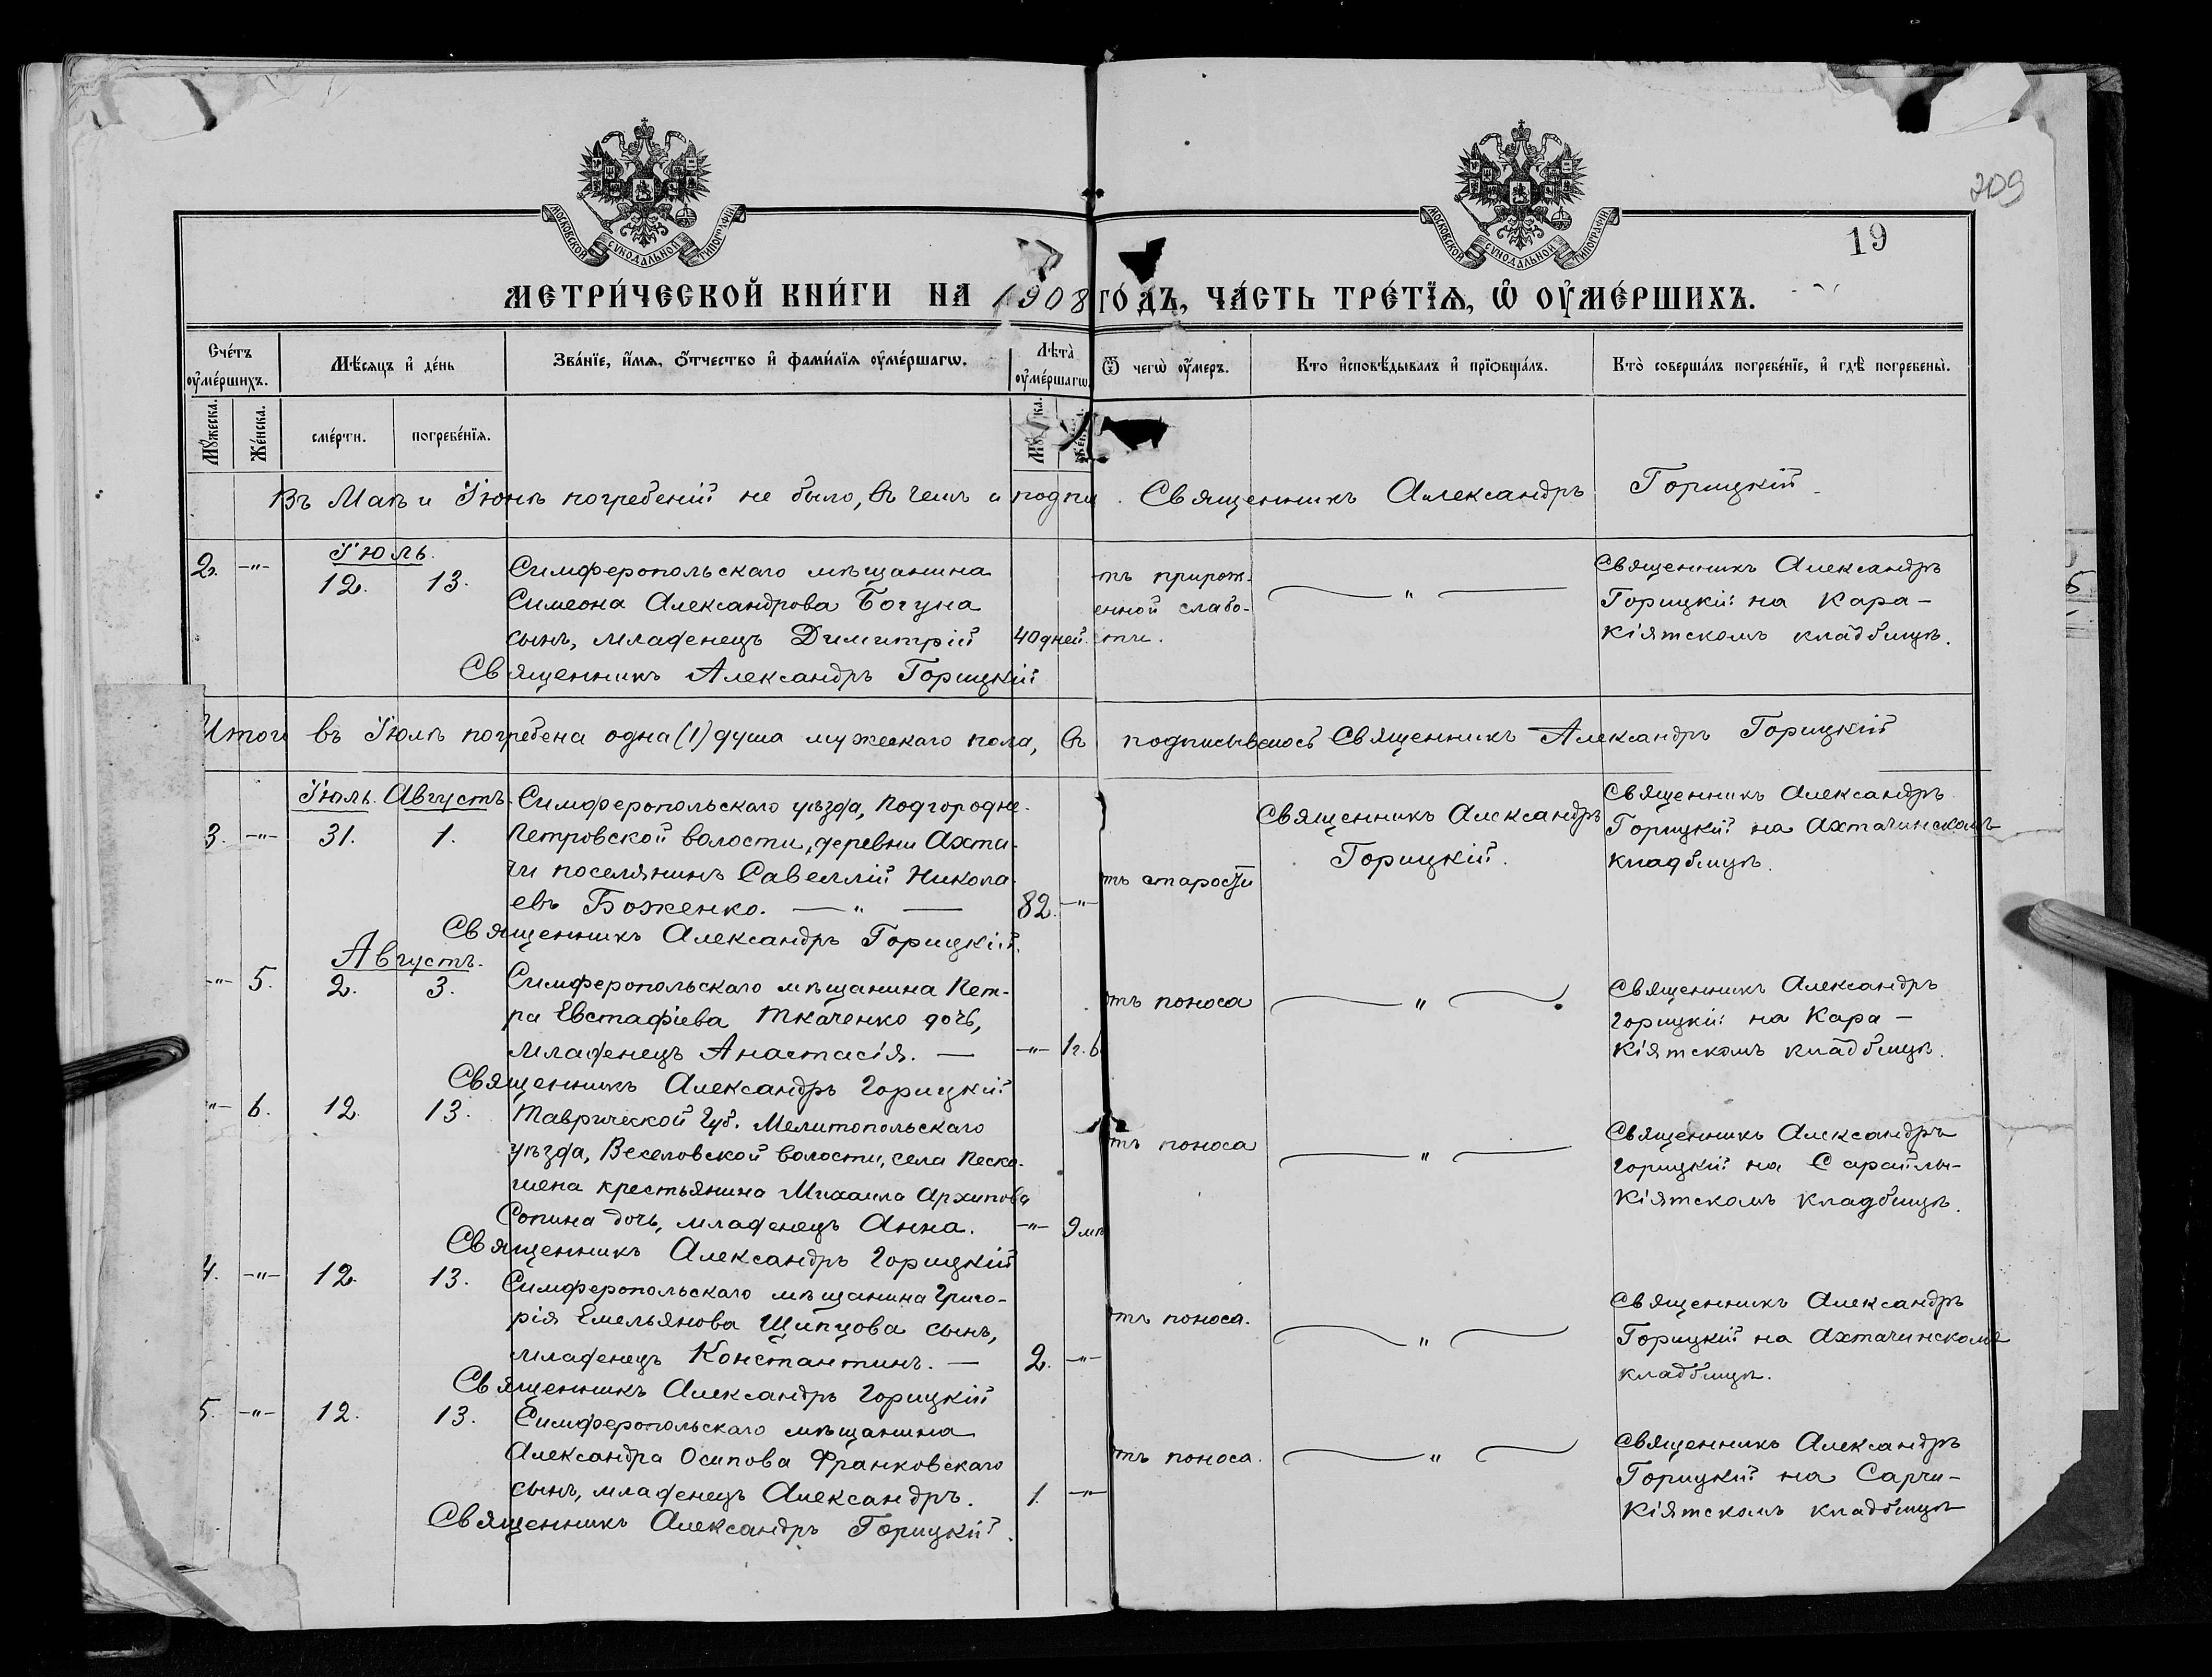 209
19
МОСКОВСКОЙ СѴНОДАЛЬНОЙ ТИПОГРАФІИ
МОСКОВСКОЙ СѴНОДАЛЬНОЙ ТИПОГРАФІИ
МЕТРИ́ЧЕСКОЙ КНИ́ГИ НА 1908 ГО́ДЪ, ЧА́СТЬ ТРЕ́ТЇѦ, Ѽ ОУ҆МЕ́РШИХЪ.
Сче́тъ оу҆ме́ршихъ.
Мѣ́сяцъ и҆ де́нь
Зва́нїе, и҆́мя, ѻ҆́тчество и҆ фами́лїя оу҆ме́ршагѡ.
Лѣ̑та оу҆ме́ршагѡ.
Ѿ чегѡ̀ оу҆́меръ.
Кто̀ и҆сповѣ́дывалъ и҆ прїѡбща́лъ.
Кто̀ соверша́лъ погребе́нїе, и҆ гдѣ̀ погребены̀.
Мꙋ́жеска.
Же́нска.
сме́рти.
погребе́нїя.
Въ Маѣ и Іюнѣ погребеній не было, въ чемъ и подпи . Священникъ Александръ Горицкій
Іюль.
2. -"- 12. 13. Симферопольскаго мѣщанина
Симеона Александрова Богуна
сынъ, младенецъ Димитрій 40 дней.
Священникъ Александръ Горицкій
тъ прирож-
енной слабо-
сти.
"
Священникъ Александръ
Горицкій на Кара-
Кіятскомъ кладбищѣ.
Итого въ Іюлѣ погребена одна (1) душа мужескаго пола, въ подписываюсь Священникъ Александръ Горицкій
Іюль. Августъ. Симферопольскаго уѣзда, Подгородне-
3. -"- 31. 1. Петровской волости, деревни Ахта-
чи поселянинъ Савеллій Никола-
евъ Боженко. — " — 82. -"-
Священникъ Александръ Горицкій.
тъ старости
Священникъ Александръ
Горицкій.
Священникъ Александръ
Горицкій на Ахтачинскомъ
кладбищѣ.
Августъ.
-"- 5. 2. 3. Симферопольскаго мѣщанина Пет-
ра Евстафіева Ткаченко дочь,
младенецъ Анастасія. — -"- 1 г. 6
Священникъ Александръ Горицкій
отъ поноса
"
Священникъ Александръ
Горицкій на Кара-
Кіятскомъ кладбищѣ.
-"- 6. 12. 13. Таврической Губ. Мелитопольскаго
уѣзда, Веселовской волости, села Песко-
шена крестьянина Михаила Архипова
Сопина дочь, младенецъ Анна. -"- 9 мѣ
Священникъ Александръ Горицкій
отъ поноса
"
Священникъ Александръ
Горицкій на Сарайлы-
Кіятскомъ кладбищѣ.
4. -"- 12. 13. Симферопольскаго мѣщанина Григо-
рія Емельянова Шипцова сынъ,
младенецъ Константинъ. — 2. -"-
Священникъ Александръ Горицкій
отъ поноса.
"
Священникъ Александръ
Горицкій на Ахтачинскомъ
кладбищѣ.
5. -"- 12. 13. Симферопольскаго мѣщанина
Александра Осипова Франковскаго
сынъ, младенецъ Александръ. 1. -"-
Священникъ Александръ Горицкій.
отъ поноса.
"
Священникъ Александръ
Горицкій на Сарчи-
Кіятскомъ кладбищѣ